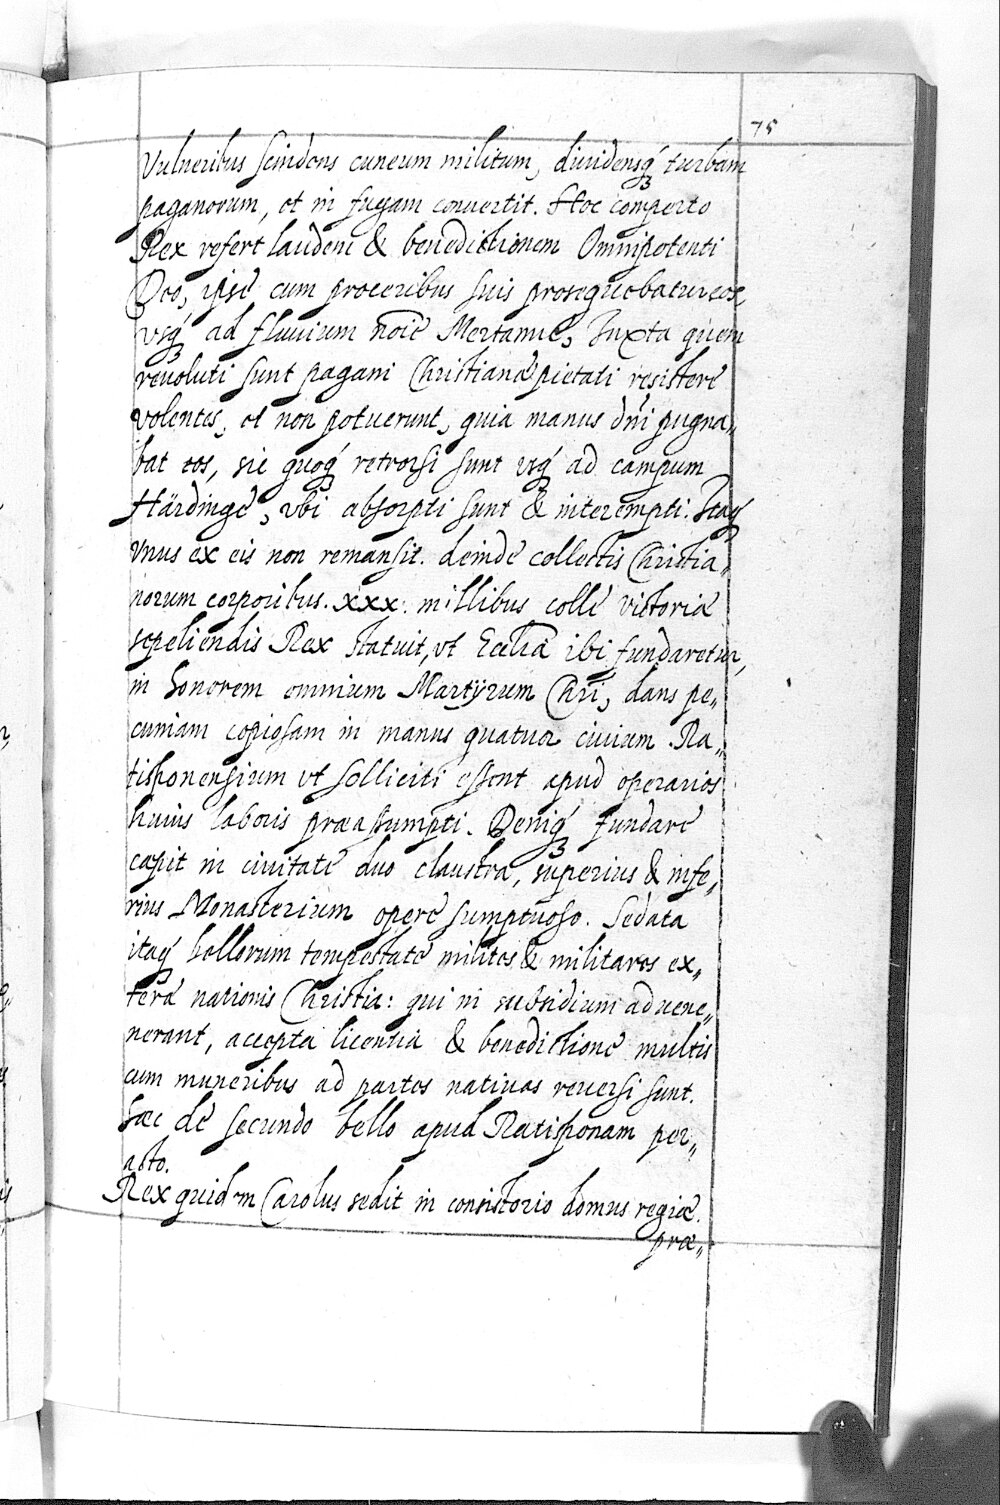 75
Vulneribus scindens cuneum militum, diuidensq́ʒ turbam
paganorum, et in fugam conuertit. Hoc comperto
Rex refert laudem & benedictionem Omnipotenti
Deo, ipse cum proceribus suis prosequebatur eos,
vsq́ʒ ad fluuium noīe Mertanie, Juxta quem
reuoluti sunt pagani Christianæ pietati resistere
volentes, et non potuerunt, quia manus dn̄i pugna„
bat eos, sic quoq́ʒ retrorsi sunt vsq́ʒ ad campum
Härdinge, vbi absorpti sunt & interempti. Itaq́ʒ
vnus ex eis non remansit. deinde collectis Christia„
norum corporibus. xxx. millibus colle victoriæ
sepeliendis Rex statuit, vt Eccl̄ia ibi fundaretur,
in honorem omnium Martÿrum Chr̄i, dans pe„
cuniam copiosam in manus quatuor ciuium Ra„
tisponensium vt solliciti essent apud operarios
huius laboris præassumpti. Deniq́ʒ fundare
cæpit in ciuitate duo claustra, superius & infe„
rius Monasterium opere sumptuoso. Sedata
itaq́ʒ bellorum tempestate milites & militares ex„
teræ nationis Christiæ: qui in subsidium aduene„
nerant, accepta licentia & benedictione multis
cum muneribus ad partes natiuas reuersi sunt.
hæc de secundo bello apud Ratisponam per„
acto.
Rex quidem Carolus sedit in consistorio domus regiæ.
præ„